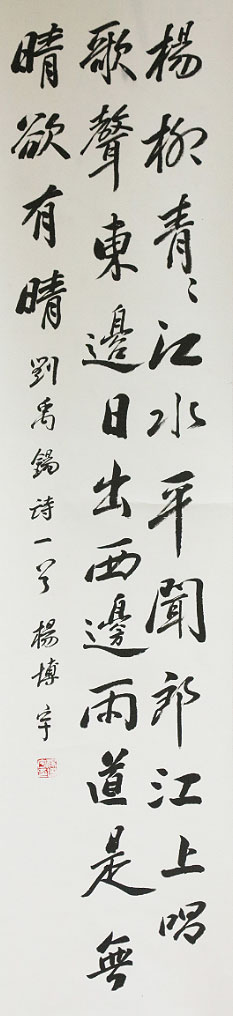 楊柳青〻江水平聞郎江上唱
歌聲東邊日出西邊雨道是無
晴欲有晴 劉禹錫詩一首 楊博宇